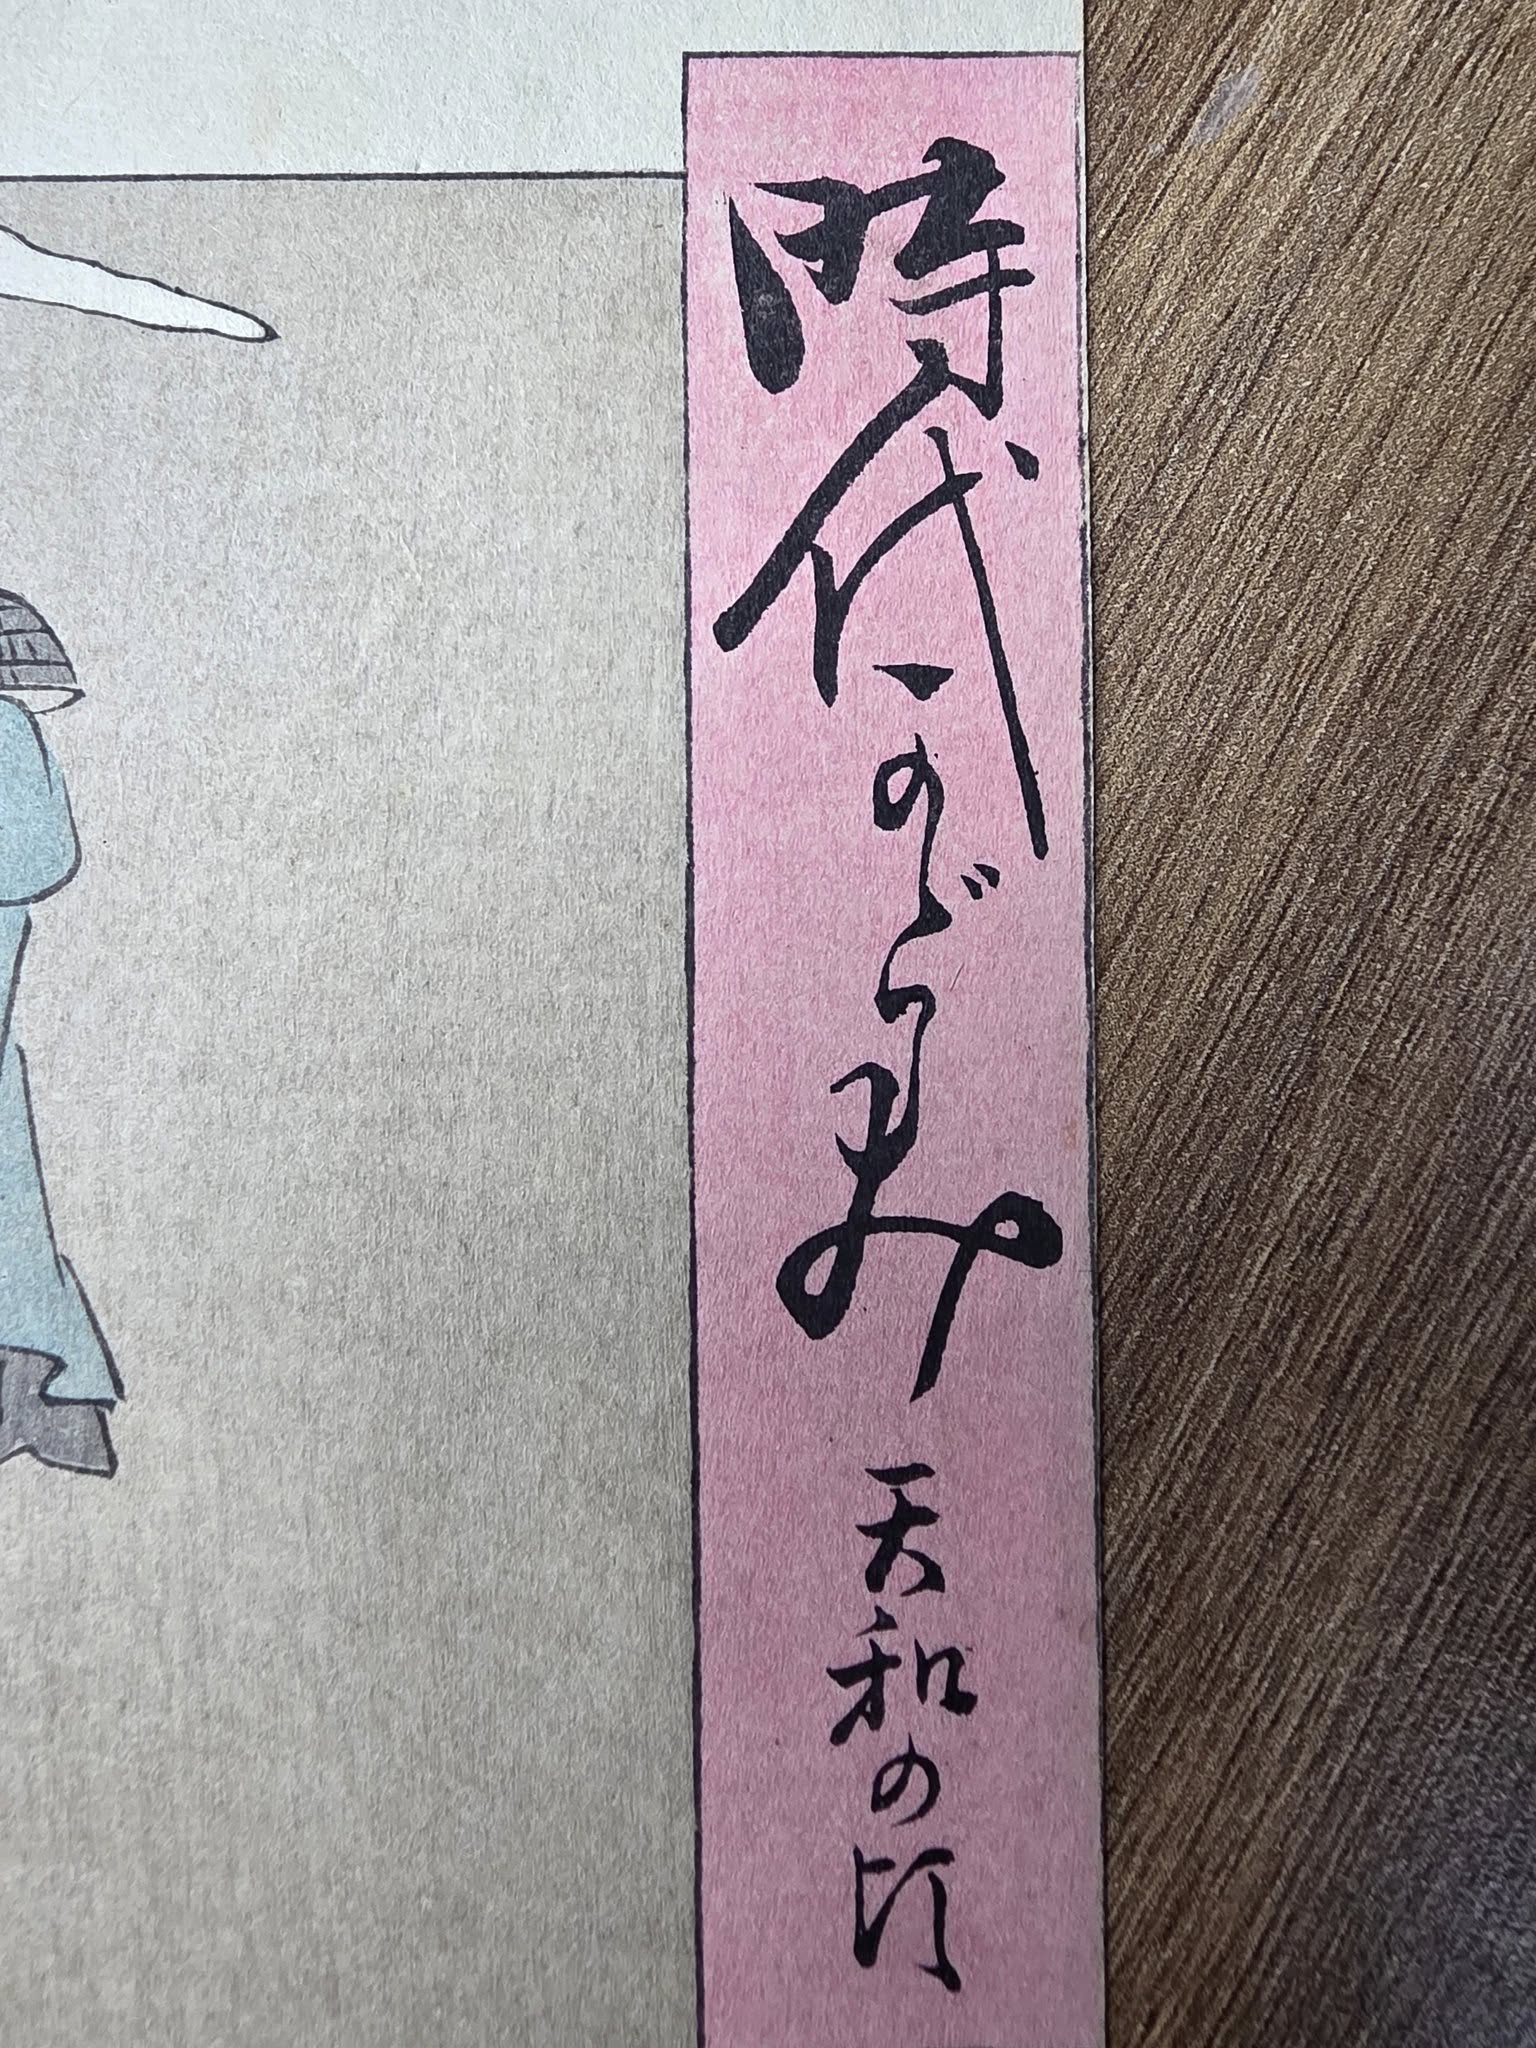 時代かゞみ
天和の頃